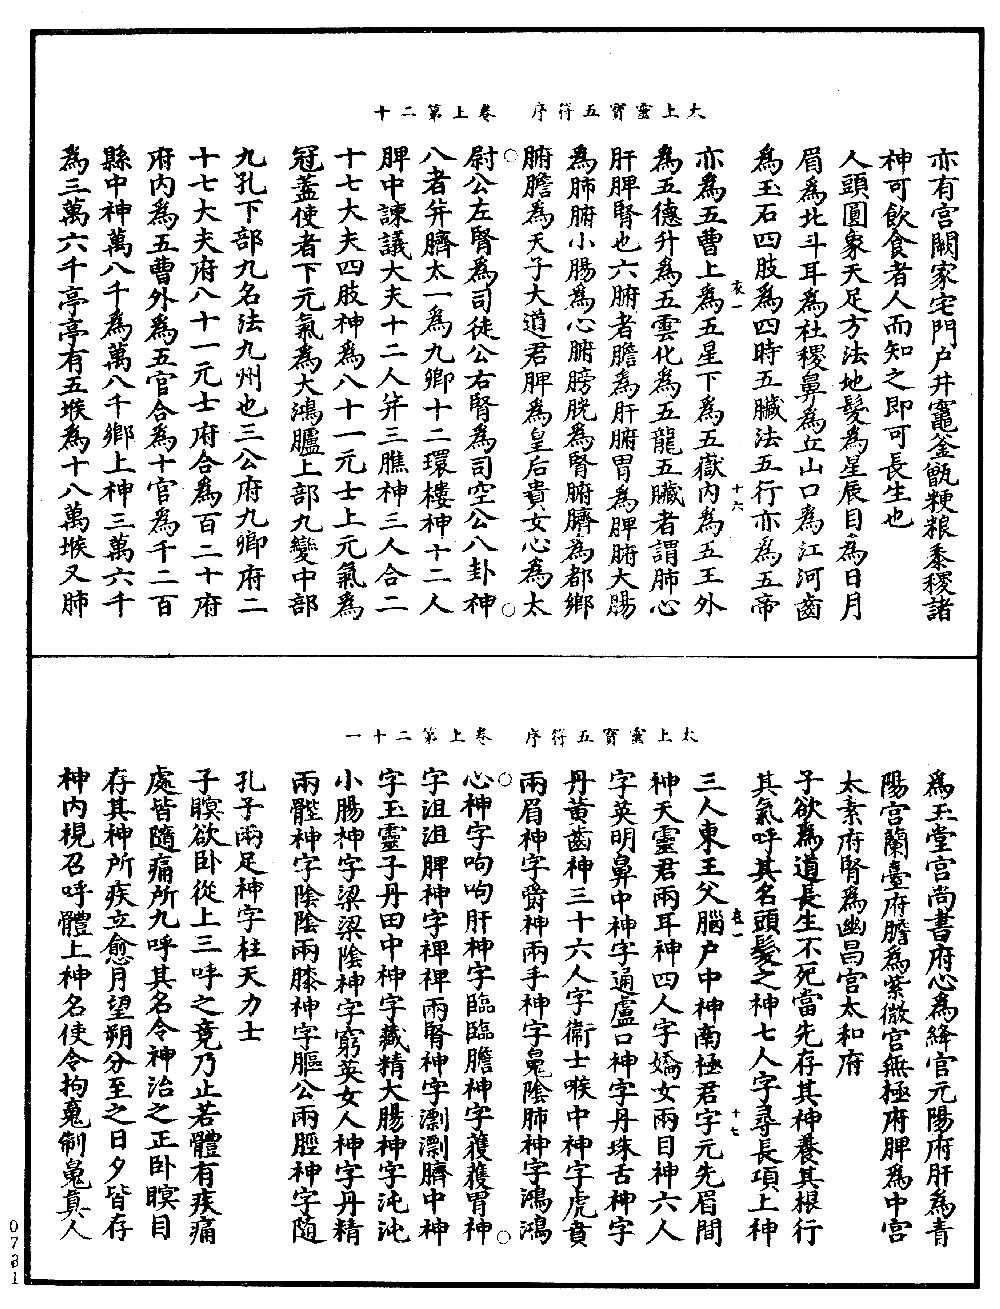 太上靈寶五符序　卷上第二十
亦有宮闕家宅門户井竈釜甑粳粮黍稷諸
神可飲食者人而知之即可長生也
人頭圓象天足方法地髮為星辰目為日月
眉為北斗耳為社稷鼻為丘山口為江河齒
為玉石四肢為四時五臟法五行亦為五帝
亦為五曹上為五星下為五嶽内為五王外
為五德升為五雲化為五龍五臟者謂肺心
肝脾腎也六腑者膽為肝腑胃為脾腑大腸
為肺腑小腸為心腑膀胱為腎腑臍為都鄉
腑膽為天子大道君脾為皇后貴女心為太
尉公左腎為司徒公右腎為司空公八卦神
八者并臍太一為九卿十二環樓神十二人
脾中諫議大夫十二人并三膲神三人合二
十七大夫四肢神為八十一元士上元氣為
冠蓋使者下元氣為大鴻臚上部九變中部
九孔下部九名法九州也三公府九卿府二
十七大夫府八十一元士府合為百二十府
府内為五曹外為五官合為十官為千二百
縣中神萬八千為萬八千鄉上神三萬六千
為三萬六千亭亭有五堠為十八萬堠又肺
太上靈寶五符序　卷上第二十一
為玉堂宮尚書府心為絳宮元陽府肝為青
陽宮蘭臺府膽為紫微宮無極府脾為中宮
太素府腎為幽昌宮太和府
子欲為道長生不死當先存其神養其根行
其氣呼其名頭髮之神七人字尋長項上神
三人東王父腦户中神南極君字元先眉間
神天靈君兩耳神四人字嬌女兩目神六人
字英明鼻中神字通盧口神字丹珠舌神字
丹黄齒神三十六人字衛士喉中神字虎賁
兩眉神字爵神兩手神字魄陰肺神字鴻鴻
心神字呴呴肝神字臨臨膽神字護護胃神
字沮沮脾神字裨裨兩腎神字漂漂臍中神
字玉靈子丹田中神字藏精大腸神字沌沌
小腸神字梁梁陰神字窮英女人神字丹精
兩髀神字陰陰兩膝神字樞公兩脛神字隨
孔子兩足神字柱天力士
子瞑欲卧從上三呼之竟乃止若體有疾痛
處皆隨痛所九呼其名令神治之正卧瞑目
存其神所疾立愈月望朔分至之日夕皆存
神内視召呼體上神名使令拘魂制魄真人
衣一
十六
衣一
十七
0731